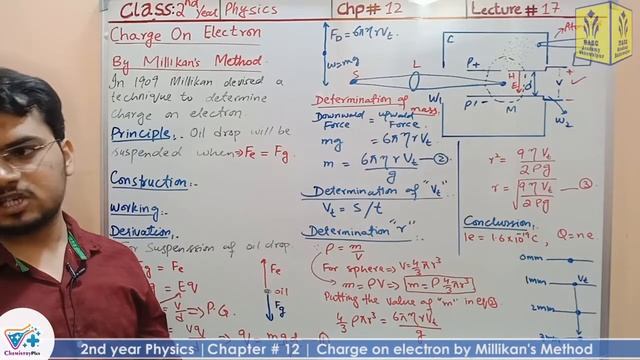 Class: 2nd year | Physics
Chp # 12
Lecture # 17
Charge On Electron
By Millikan's Method.
In 1909 Millikan devised a
technique to determine
charge on electron.
Principle:- Oil drop will be
suspended when → Fe = Fg.
Construction:-
Working:-
Derivation:-
For Suspenssion of oil drop
g = Fe
= Eq
= V/d → P.G.
Vq
Fe
oil
Fg
FD = 6πηrVt
w = mg
S
L
W1
C
P+
P1 -
H
E
d
M
V
+
W2
Determination of mass.
Downward Force = upward Force.
mg = 6πηrVt
m = 6πηrVt / g — ②
Determination of "Vt"
Vt = S/t
Determination "r"
∴ ρ = m/v
For sphere ⇒ V = 4/3 πr³
m = ρV ⇒ m = ρ 4/3 πr³
Putting the value of "m" in eq ②
4/3 ρπr³ = 6πηrVt / g
r² = 9ηVt / 2ρg
r = √(9ηVt / 2ρg) — ③
Conclussion.
1e = 1.6x10⁻¹⁹C, Q = ne
0mm
1mm
Vt
2mm
BASC
Academy
ChemistryPlus
2nd year Physics | Chapter # 12 | Charge on electron by Millikan's Method